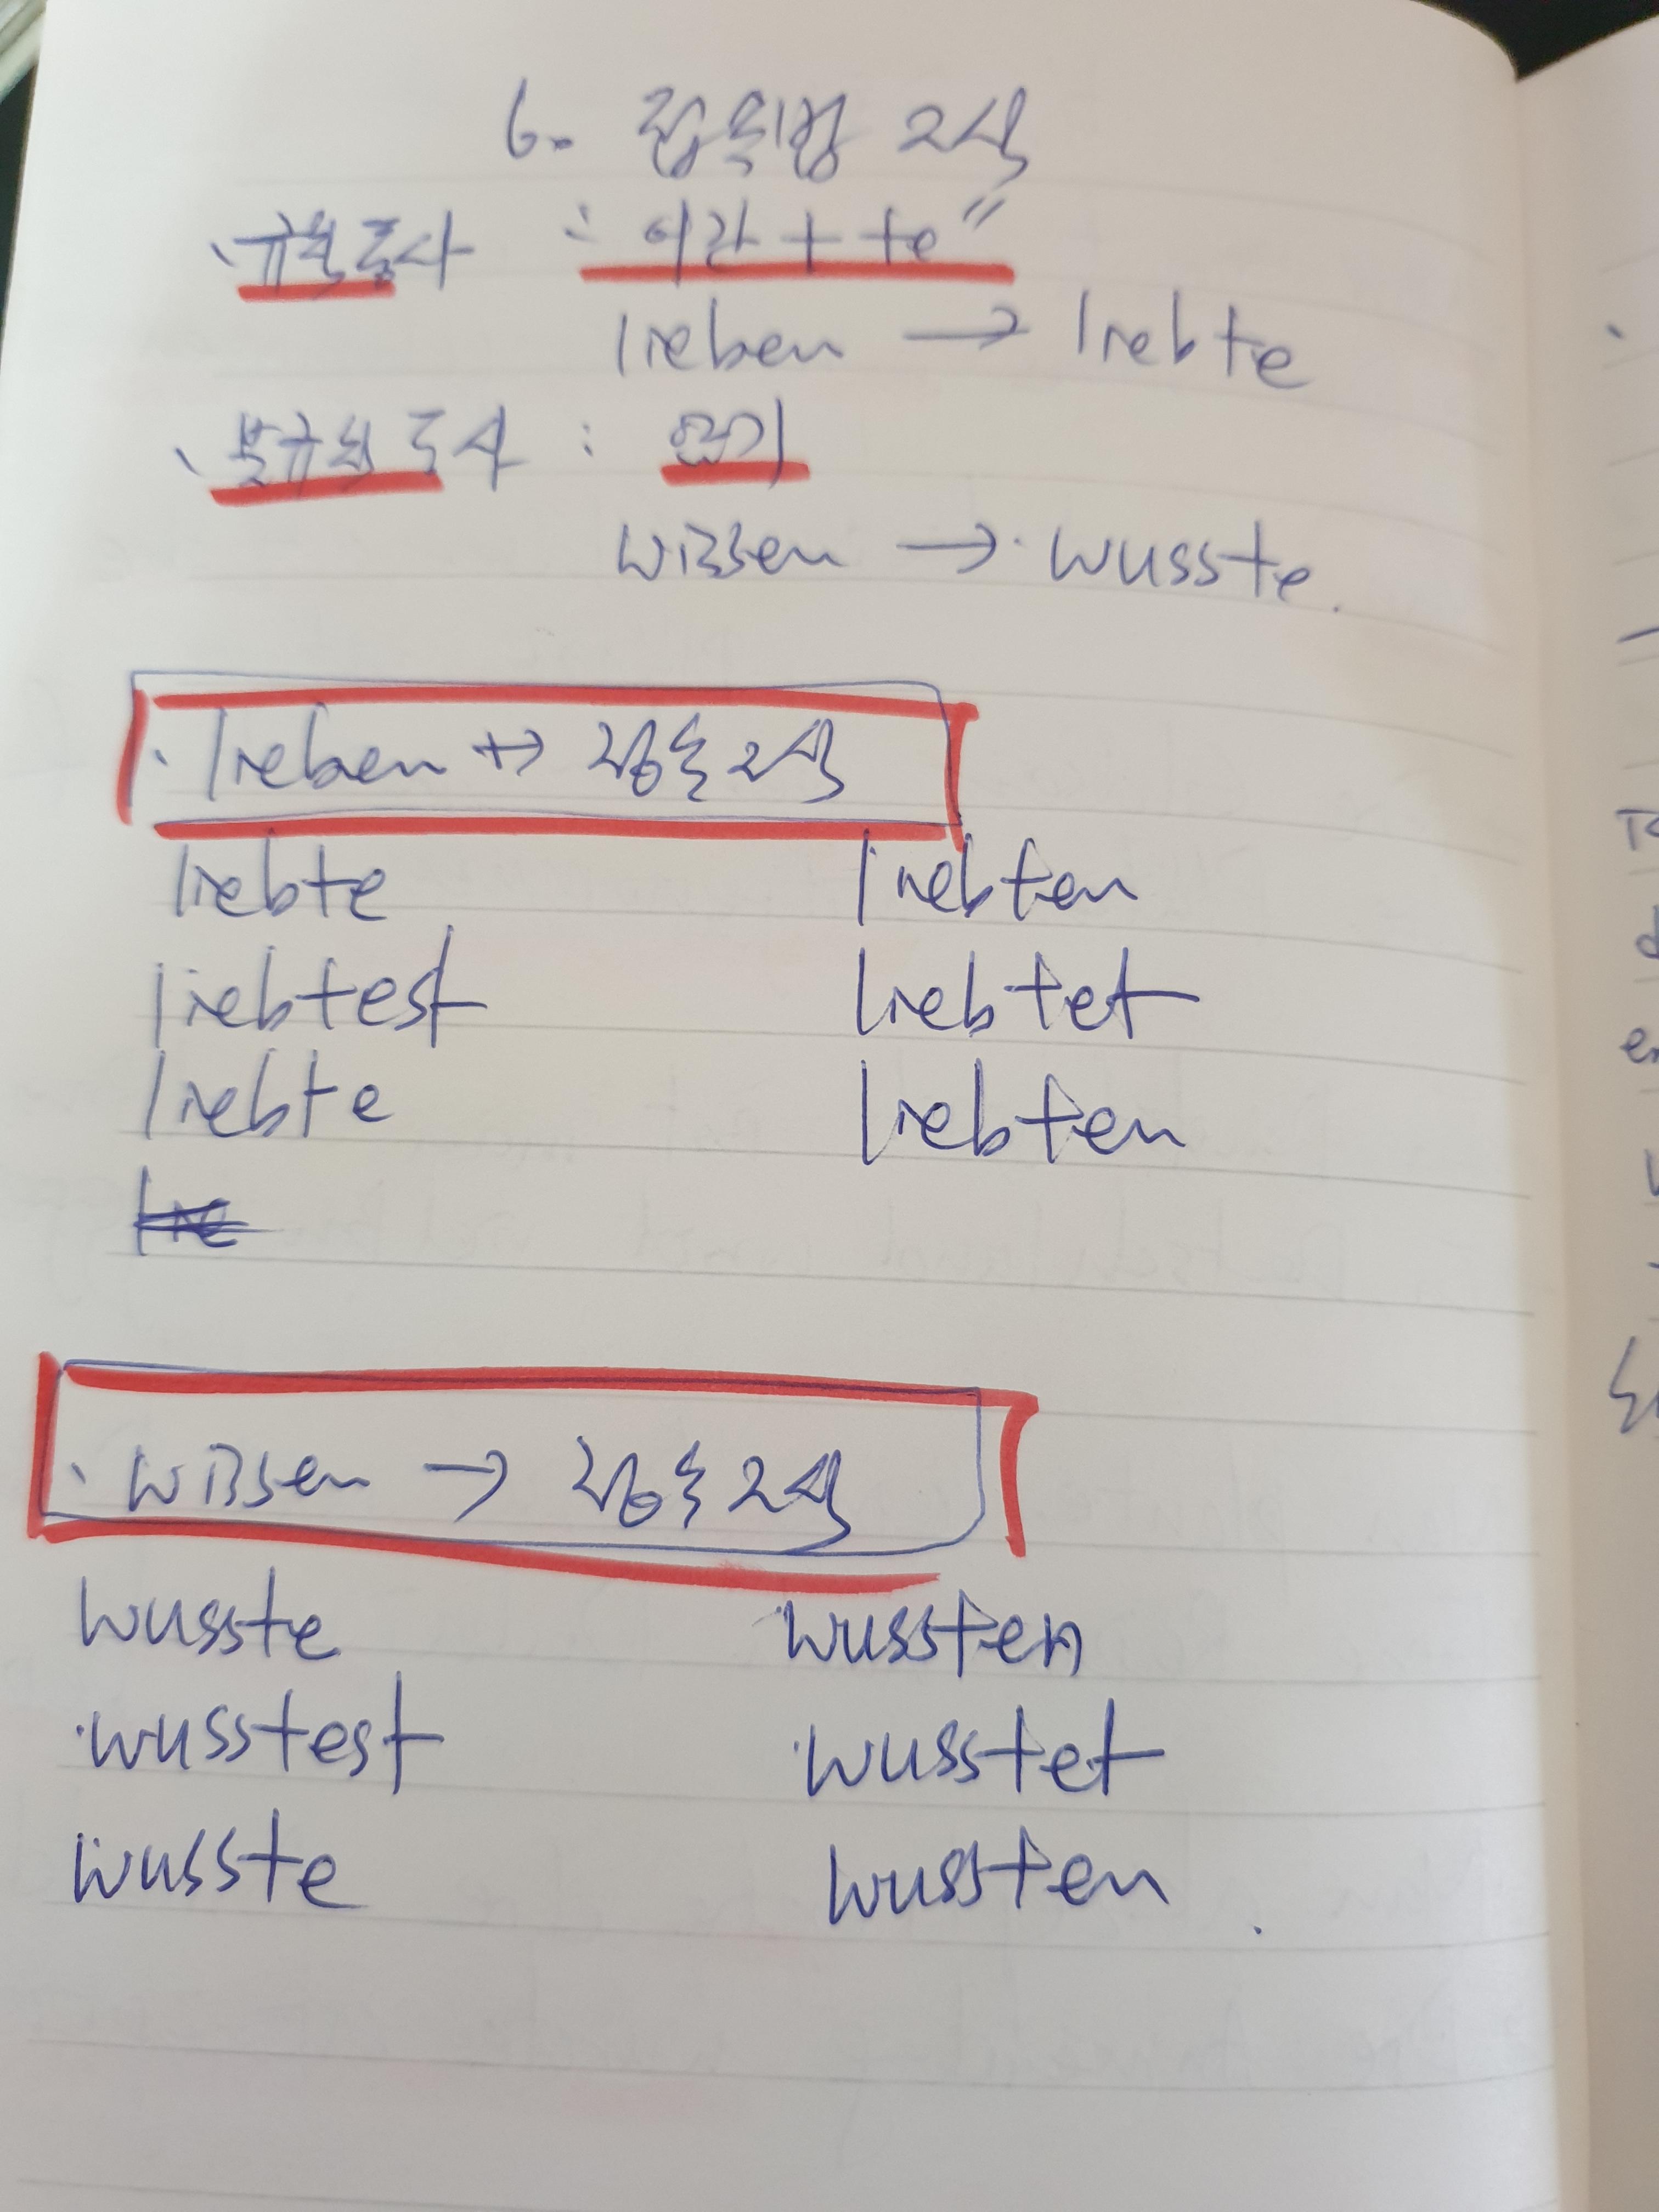 6. 접속법 2식
· 규칙동사 : 어간 + te"
lieben → liebte
· 불규칙 동사 : 암기
wissen → wusste.
· lieben → 접속 2식
liebte liebten
liebtest liebtet
liebte liebten
lie
· wissen → 접속 2식
wusste wussten
wusstest wusstet
wusste wussten.